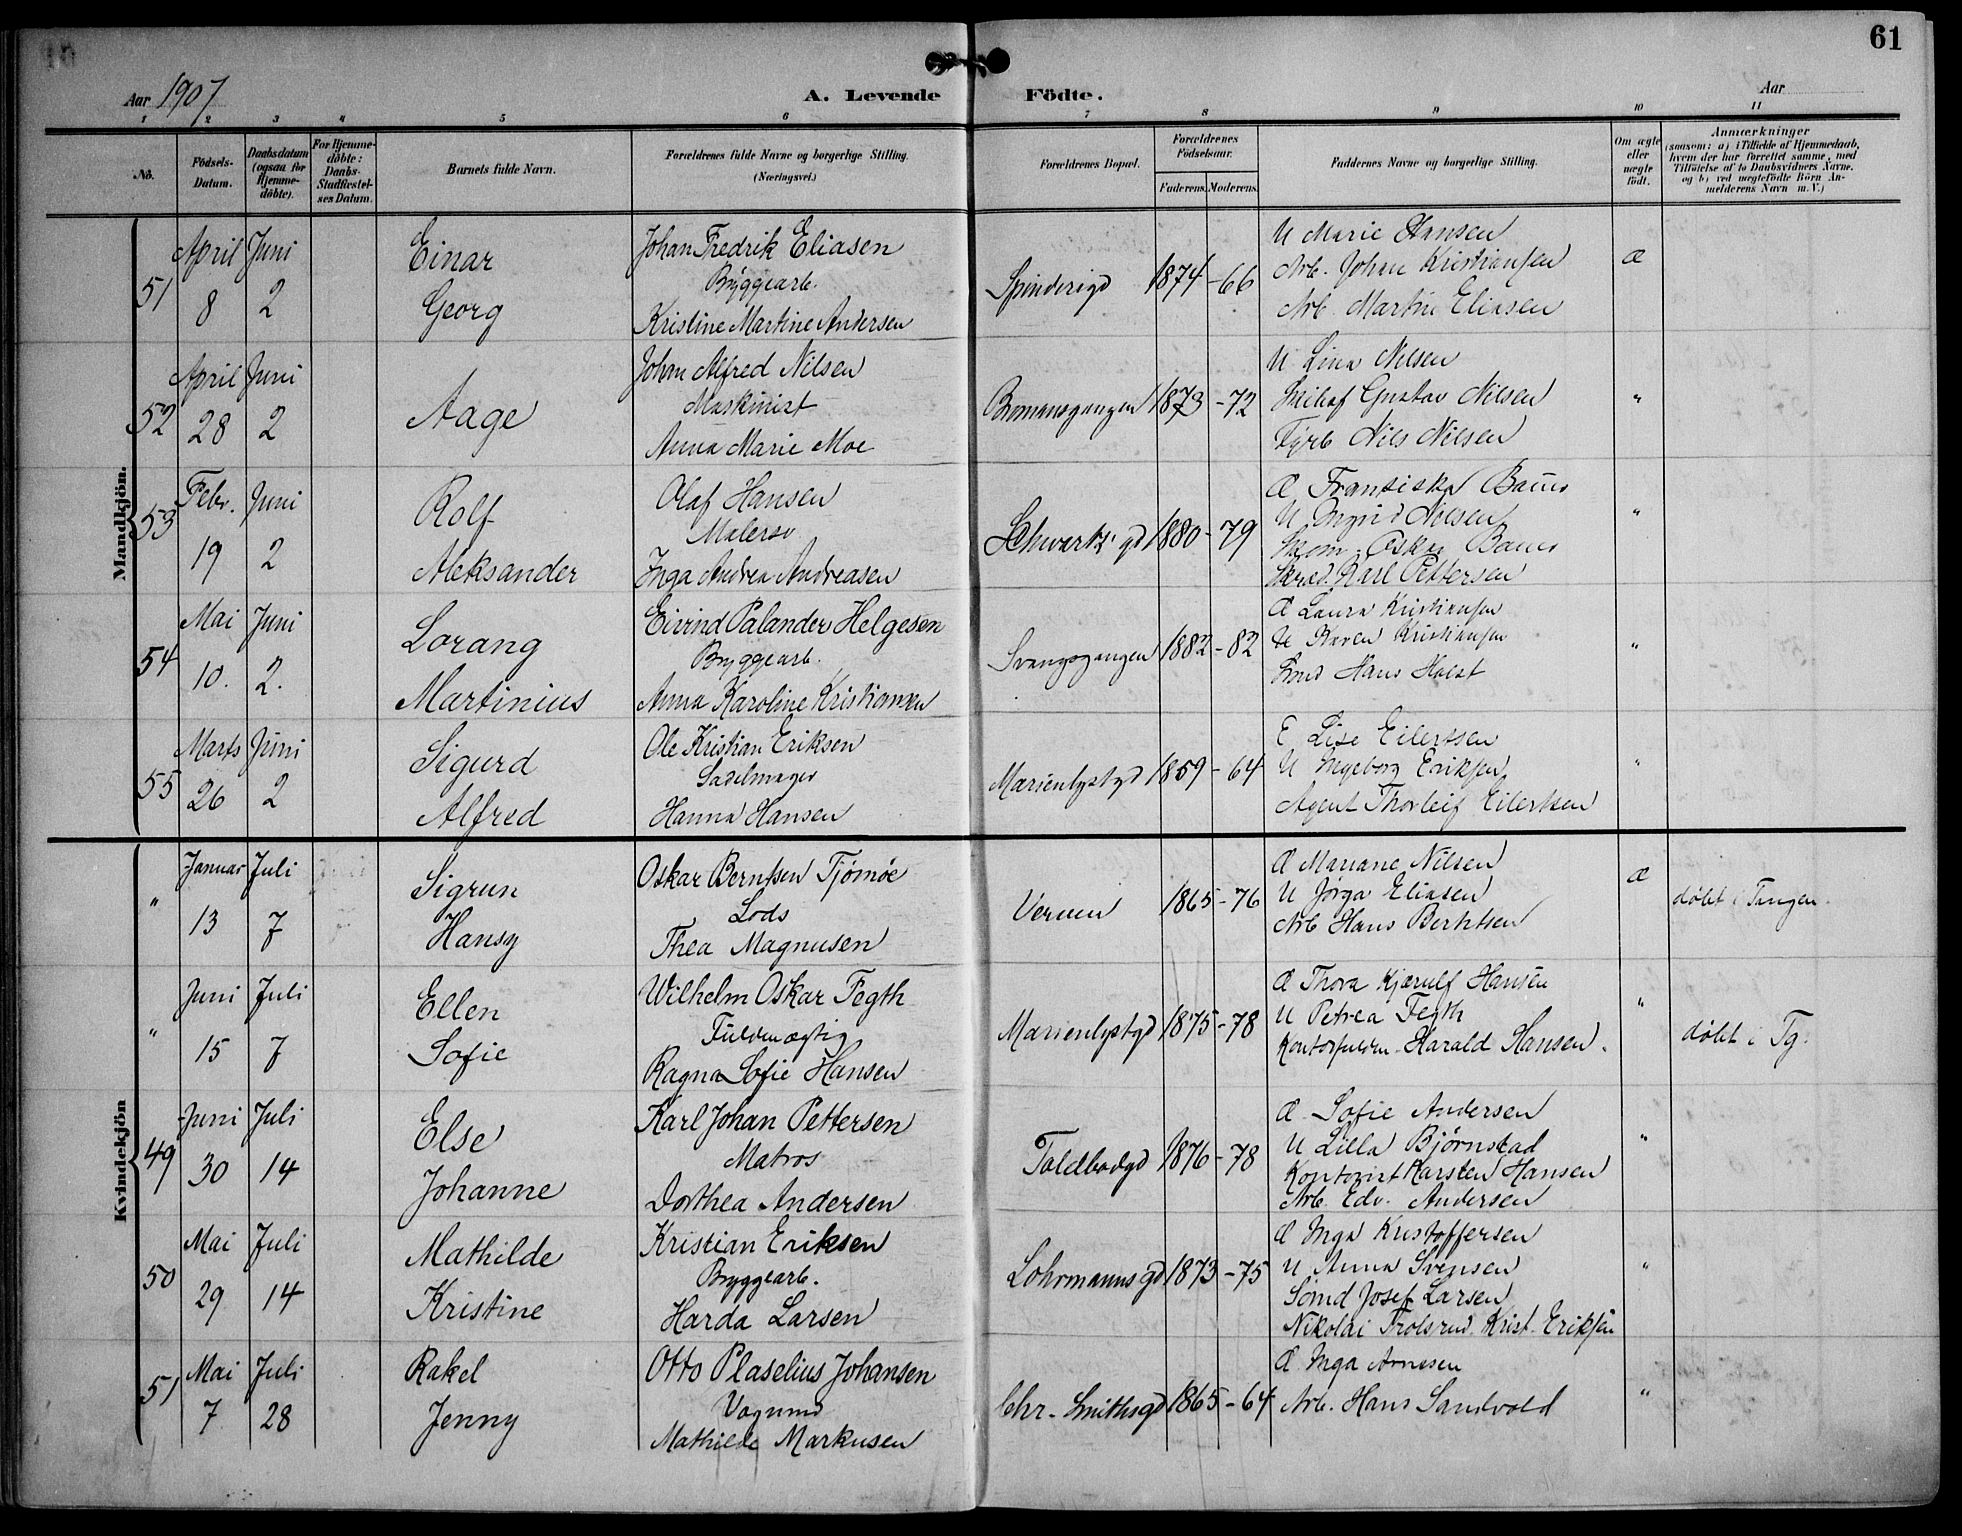 61
Aar 1907
A. Levende Födte.
Aar
1 2 3 4 5 6 7 8 9 10 11
No.
Födsels-Datum.
Daabsdatum (ogsaa for Hjemme-döbte).
For Hjemme-döbte: Daabs-Stadfæstel-ses Datum.
Barnets fulde Navn.
Forældrenes fulde Navne og borgerlige Stilling. (Næringsvei.)
Forældrenes Bopæl.
Forældrenes Födselsaar.
Faderens. Moderens.
Faddernes Navne og borgerlige Stilling.
Om ægte eller uægte födt.
Anmærkninger
(saasom: a) i Tilfælde af Hjemmedaab, hvem der har forrettet samme, med Tilföielse af to Daabsvidners Navne, og b) ved uægtefödte Börn An-melderens Navn m. V.)
Mandkjön.
51
April 8
Juni 2
Einar
Georg
Johan Fredrik Eliasen
Bryggearb.
Kristine Martine Andersen
Spinderigd
1874 - 66
U Marie Hansen
Arb. Johan Kristiansen
Arb. Martin Eliasen
Æ
52
April 28
Juni 2
Aage
Johan Alfred Nilsen
Maskinist
Anna Marie Moe
Bromansgangen
1873 - 72
U Lina Nilsen
Gustav Nilsen
Fyrb Nils Nilsen
"
53
Febr. 19
Juni 2
Rolf
Aleksander
Olaf Hansen
Malersv.
Inga Andrea Andreasen
Schwartz' gd
1880 - 79
Æ Fransiska
U Ingrid Nilsen
Skom. Oskar
Skræd. Karl Pettersen
"
54
Mai 10.
Juni 2.
Lorang
Martinius
Eivind Palander Helgesen
Bryggearb.
Anna Karoline Kristiansen
Svangsgangen
1882 - 82
Æ Laura Kristiansen
U Karen Kristiansen
Hans Holst
"
55
Marts 26
Juni 2
Sigurd
Alfred
Ole Kristian Eriksen
Sadelmager
Hanna Hansen
Marienlystgd
1859 - 64
E Lise Eilertsen
U Ingeborg Eriksen
Agent Thorleif Eilertsen
"
Kvindekjön
"
Januar 13
Juli 7
Sigrun
Hansy
Oskar Berntsen Tjømøe
Lods
Thea Magnusen
Verven
1865 - 76
Æ Mariane Nilsen
U Jörga Eliasen
Arb Hans Berntsen
Æ
døbt i Tangen.
"
Juni 15
Juli 7
Ellen
Sofie
Wilhelm Oskar Fegth
Fuldmægtig
Ragna Sofie Hansen
Marienlystgd
1875 - 78
Æ Thora Kjærulf Hansen
U Petrea Fegth
Kontorfuldm. Harald Hansen.
"
døbt i Tg.
49
Juni 30
Juli 14
Else
Johanne
Karl Johan Pettersen
Matros
Dorthea Andersen
Toldbodgd
1876 - 78
Æ. Sofie Andersen
U Lilla Bjørnstad
Kontorist Karsten Hansen
Arb. Edv. Andersen
"
50
Mai 29
Juli 14
Mathilde
Kristine
Kristian Eriksen
Bryggearb.
Harda Larsen
Lohrmanns gd
1873 - 75
Æ Inga Kristoffersen
U Anna Svensen
Sømd Josef Larsen
Nikolai Trolsrud. Krist. Eriksen
"
51
Mai 7
Juli 28
Rakel
Jenny
Otto Plaselius Johansen
Vognmd
Mathilde Markusen
Chr. Smithsgd
1865 - 64
Æ. Inga Arnesen
Arb. Hans Sandvold
"